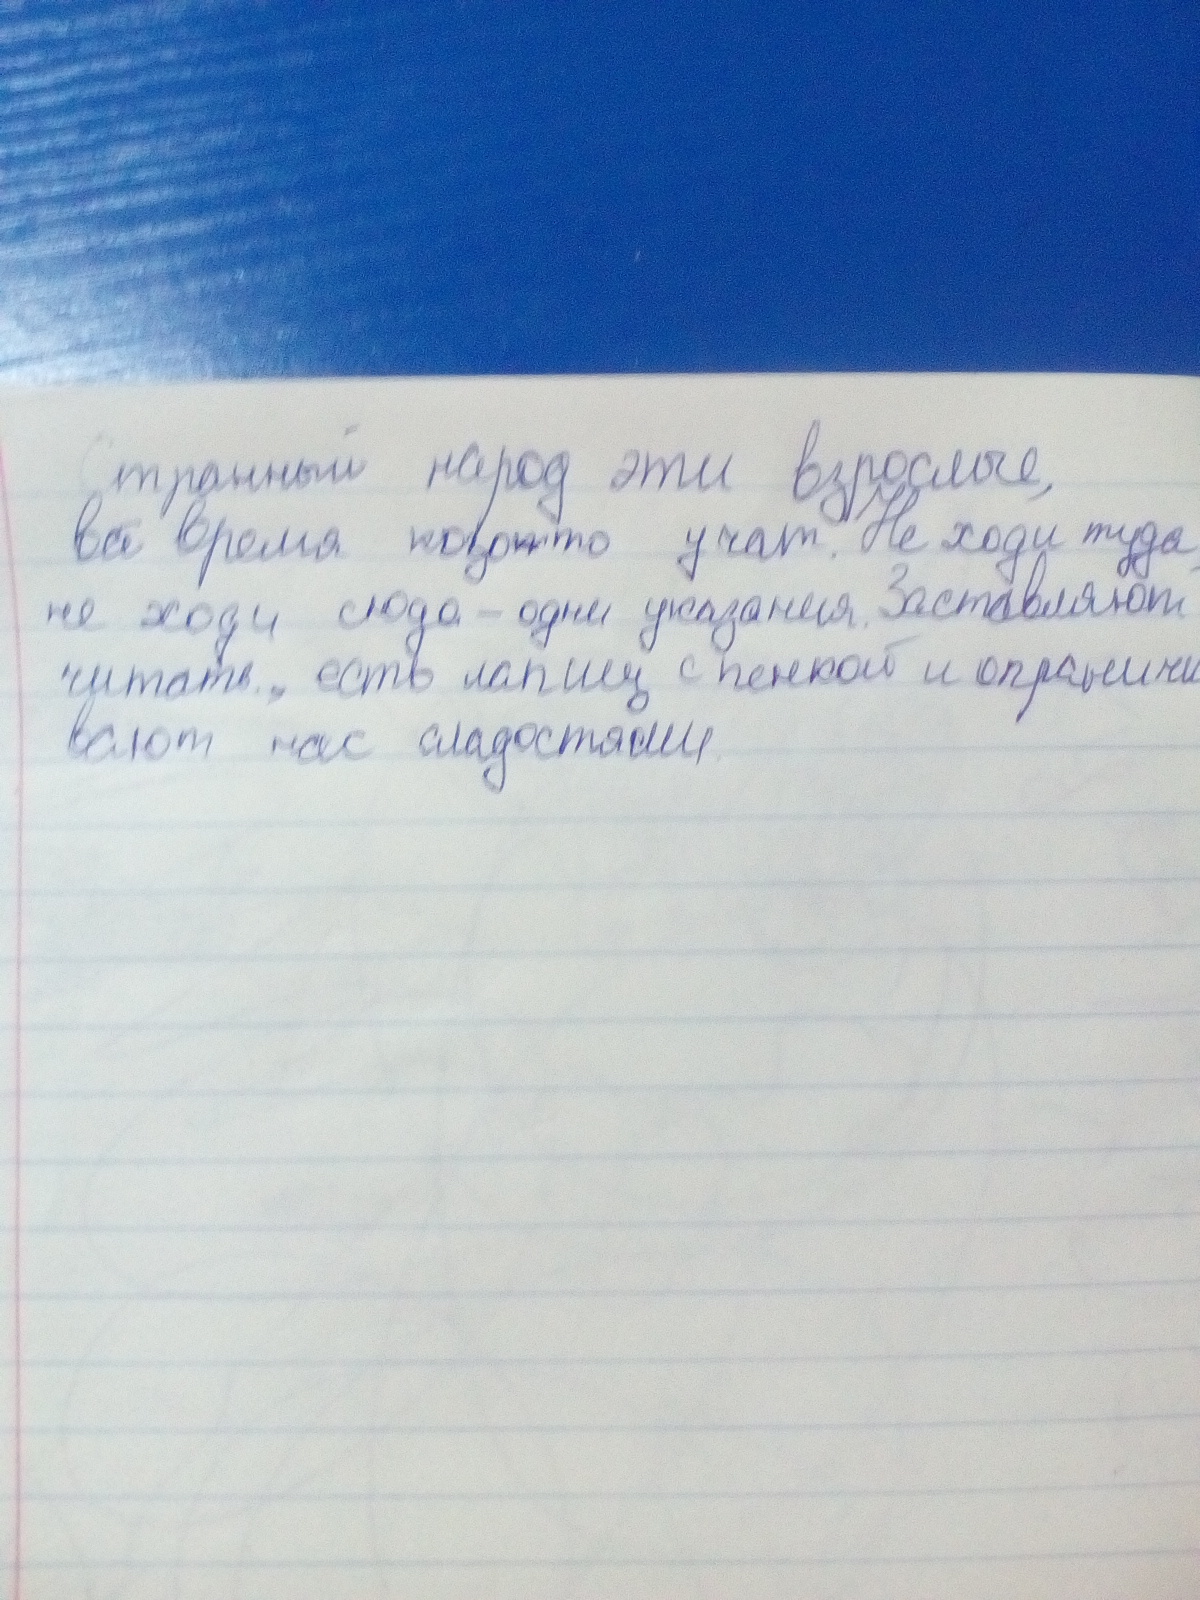 Странный народ эти взрослые,
всё время кого-то учат. Не ходи туда,
не ходи сюда – одни указания. Заставляют
читать, есть лапшу с пенкой и ограничи
вают нас сладостями.